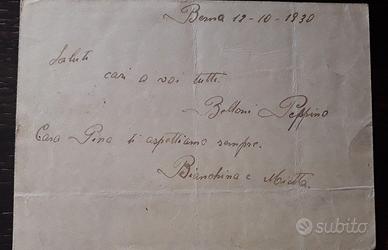 Berna 12-10-1930
Saluti
cari a voi tutti.
Belloni Peppino
Cara Pina ti aspettiamo sempre.
Bianchina e Maietta.
subito